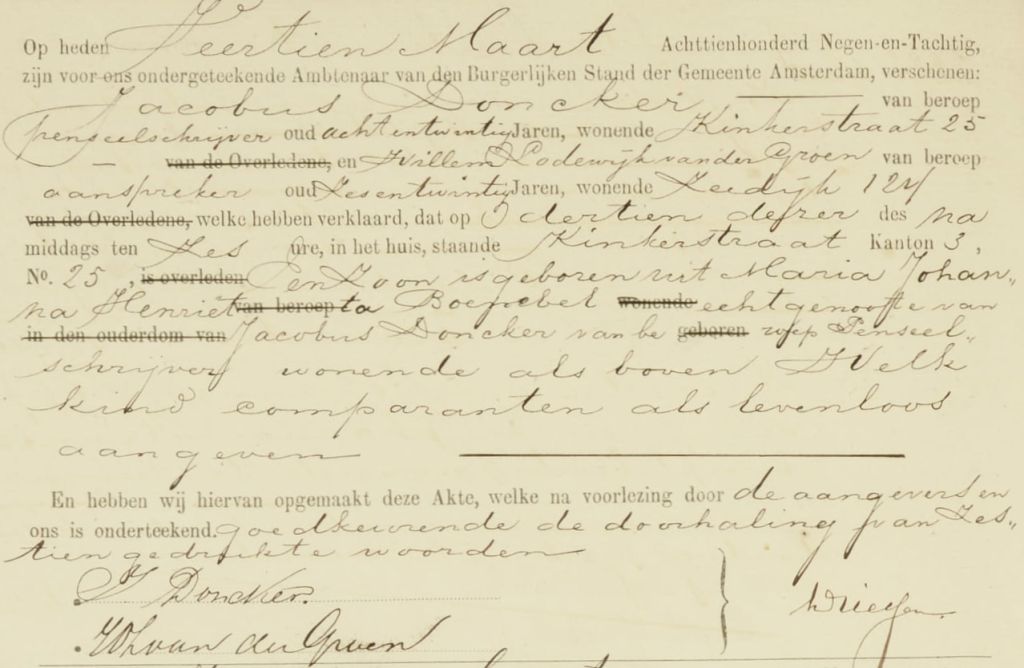 Op heden Veertien Maart Achttienhonderd Negen-en-Tachtig,
zijn voor ons ondergeteekende Ambtenaar van den Burgerlijken Stand der Gemeente Amsterdam, verschenen:
Jacobus Doncker van beroep
penseelschrijver oud achtentwintig Jaren, wonende Kinkerstraat 25
van de Overledene, en Willem Lodewijk van der Groen van beroep
aanspreker oud Zesentwintig Jaren, wonende Zeedijk 124
van de Overledene, welke hebben verklaard, dat op Dertien dezer des na
middags ten Zes ure, in het huis, staande Kinkerstraat Kanton 3,
No. 25, is overleden Een Zoon is geboren uit Maria Johan„
na Henriet van beroep ta wonende echtgenoofte van
in den ouderdom van Jacobus Doncker van be geboren roep Penseel„
schrijver wonende als boven Welk
kind comparanten als levenloos
aangeven
En hebben wij hiervan opgemaakt deze Akte, welke na voorlezing door de aangevers en
ons is onderteekend. goedkeurende de doorhaling van Zes„
tien gedrukte woorden
J Doncker.
WLvan der Groen